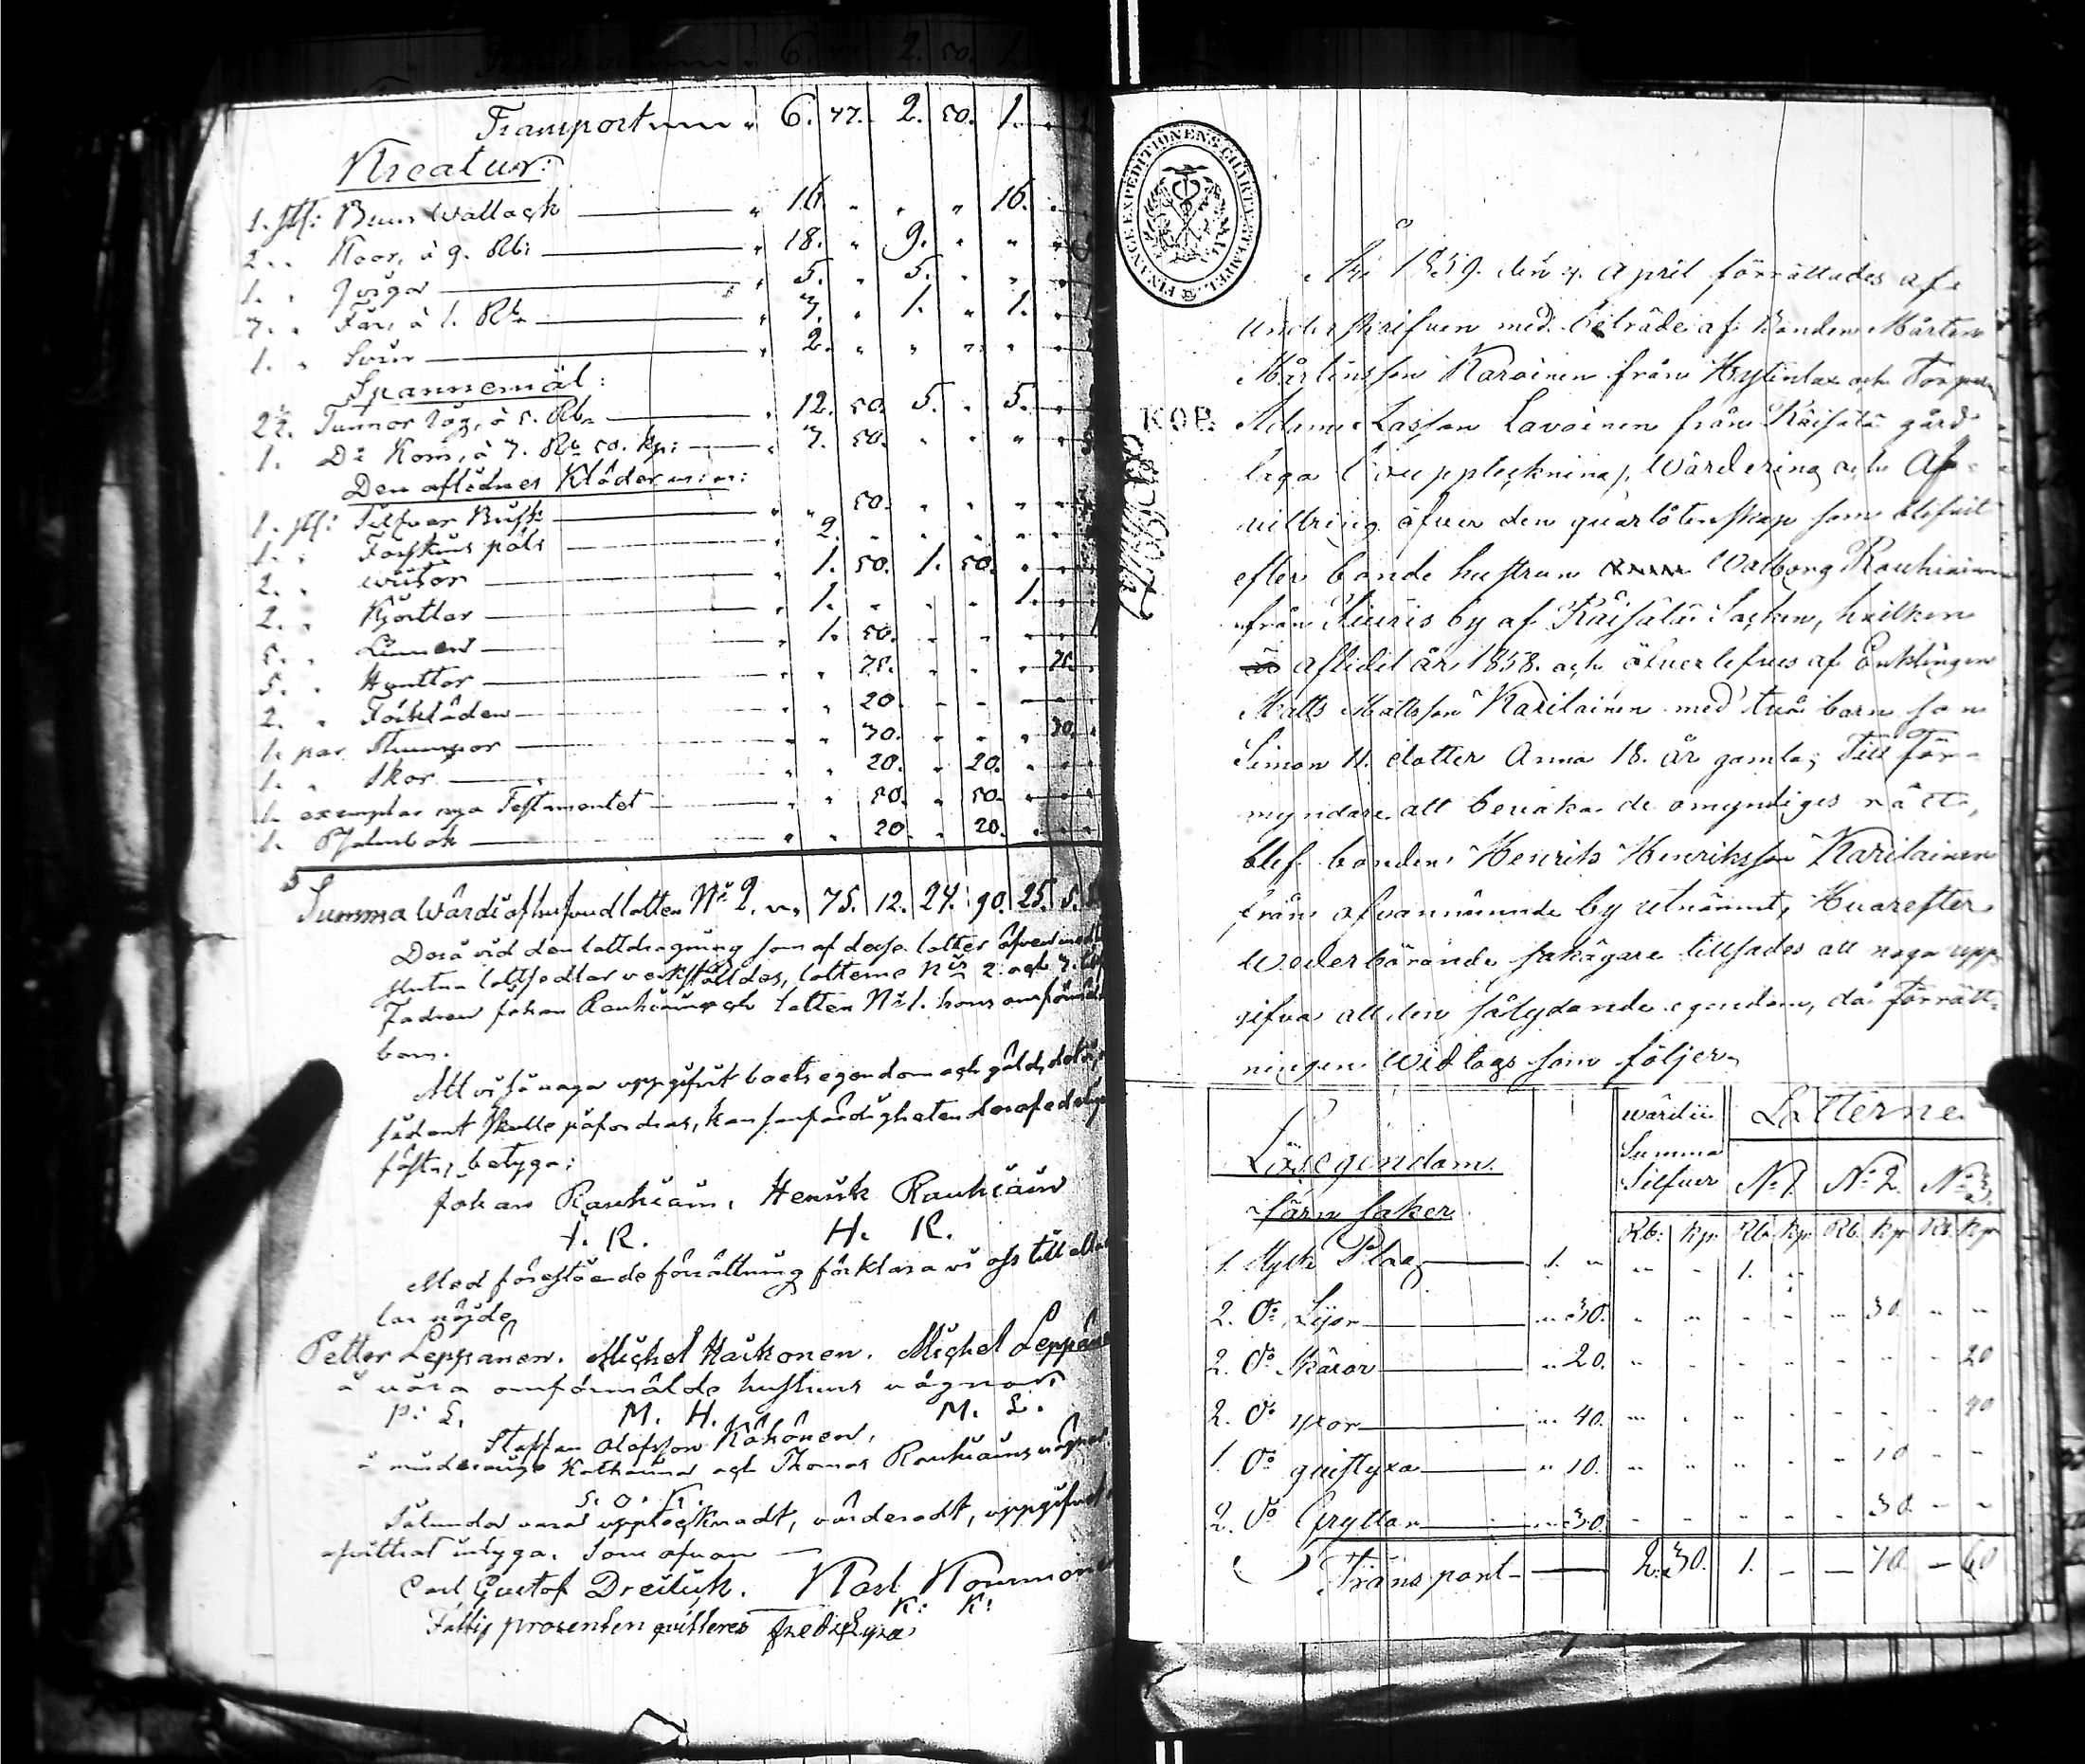 Transportum „ 6. 77. 2. 50. 1.
Kreatur:
1. st: Brun Wallack „ 16. „ „ „ 16.
2. „ Koor, à 9. Rb: „ 18. „ 9. „ „
1. „ Qviga „ 5. „ 5. „ „
7. „ Får, à 1. Rb „ 7. „ 1. „ 1.
1. „ Svin „ 2. „ „ „ „
Spannemål:
2½. Tunnor råg, à 5. Rb „ 12. 50. 5. „ 5.
1. Do Korn, à 7. Rb 50. kp: „ 7. 50. „ „ „
Den aflidnes Kläder m: m:
1. st: Silfver Brisk „ „ 50. „ „ „
1. „ Fårskins päls „ 2. „ „ „ „
2. „ „ 1. 50. 1. 50. „
2. „ Kjortlar „ 1. „ „ „ 1.
5. „ Linnen „ 1. 50. „ „ „
5. „ Hyttor „ „ 75. „ „ „ 75.
2. „ Förkläden „ „ 20. „ „ „
1. par Strumpor „ „ 30. „ „ „ 30.
1. „ Skor „ „ 20. „ 20. „
1. exemplar nya Testamentet „ „ 50. „ 50. „
1. Psalmbok „ „ 20. „ 20. „
Summa Wärdi af hufvudlotten No 2. 75. 12. 24. 90. 25. 5.
Derå vid den lottdragning som af dessa lotter äfven med
slutna lottsedlar verkställdes, lotterne No 2. och 3.
Fadren Johan Rauhiain och lotten No 1. hans omförmälde
barn.
Att vi så noga uppgifvit boets egendom och gäld,
sådant skulle påfordras, kan sanfärdigheten deraf edeligen
fästa, betyga:
Johan Rauhiain, Henrik Rauhiain
J. R. H. R.
Med förestående förrättning förklara vi oss till alla
lar nöjde
Petter Leppänen. Michel Haikonen. Michel Leppänen
å våra omförmälde hustrurs vägnar.
P: L. M. H. M. L.
Staffan Olofsson Kähönen,
å minderårige Katharina och Thomas Rauhiains vägnar.
S. O. K.
Sålunda vara uppteknadt, värderadt, uppgifvet
afvittrat intyga. Som ofvan
Carl Gustof Dreilick. Karl
K: K:
Fattig procenten quitteres
FINANCE EXPEDITIONENS CHARTÆ STEMPEL
KOP.
År 1859. den 4. April förrättades af
underskrifven med biträde af Bonden Mårten
Mårtensson Karvinen från Hytinlax och Torparen
Adam Lasson Lavoinen från Räisälä gård
laga Bouppteckning, Wärdering och Af-
vittring öfver den qvarlåtenskap som blifvit
efter bonde hustrun Walborg Rauhiainen
från Siuris by af Räisälä Socken, hvilken
aflidit år 1858. och öfverlefves af Enklingen
Matts Mattsson Karilainen med två barn son
Simon 11. dotter Anna 18. år gamla; Till För-
myndare att bevaka de omyndiges rätt,
blef bonden Henrik Henriksson Karilainen
från ofvannämnde by utnämnt, Hvarefter
Wederbörande sakägare tillsades att noga upp-
gifva all den sålydande egendom, då förrätt-
ningen Widtogs som följer.
Lösegendom. Wärdie Summa Silfver Lotterne.
No 1. No 2. No 3.
Järn saker Rb: kp Rb. kp Rb. kp Rb. kp
1. Stycke Plog 1. „ „ „ 1. „
2. Do Lijor „ 30. „ „ „ „ „ 30. „ „
2. Do Skäror „ 20. „ „ „ „ „ „ „ 20
2. Do yxor „ 40. „ „ „ „ „ „ „ 40
1. Do quistyxa „ 10. „ „ „ „ „ 10 „ „
2. Do Gryttor „ 30. „ „ „ „ „ 30 „ „
Transport 2. 30. 1. – – 70. – 60